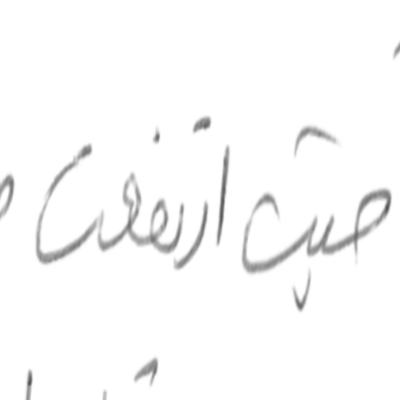 حيث ارتفعت